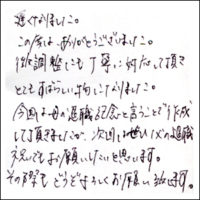 遅くなりました。
この度は、ありがとうございました。
微調整にも丁寧に対応して頂き
とてもすばらしい物になりました。
今回は母の退職記念と言うことで作成
して頂きましたが、次回はぜひ父の退職
祝いでもお願いしたいと思います。
その際も どうぞよろしくお願い致します。